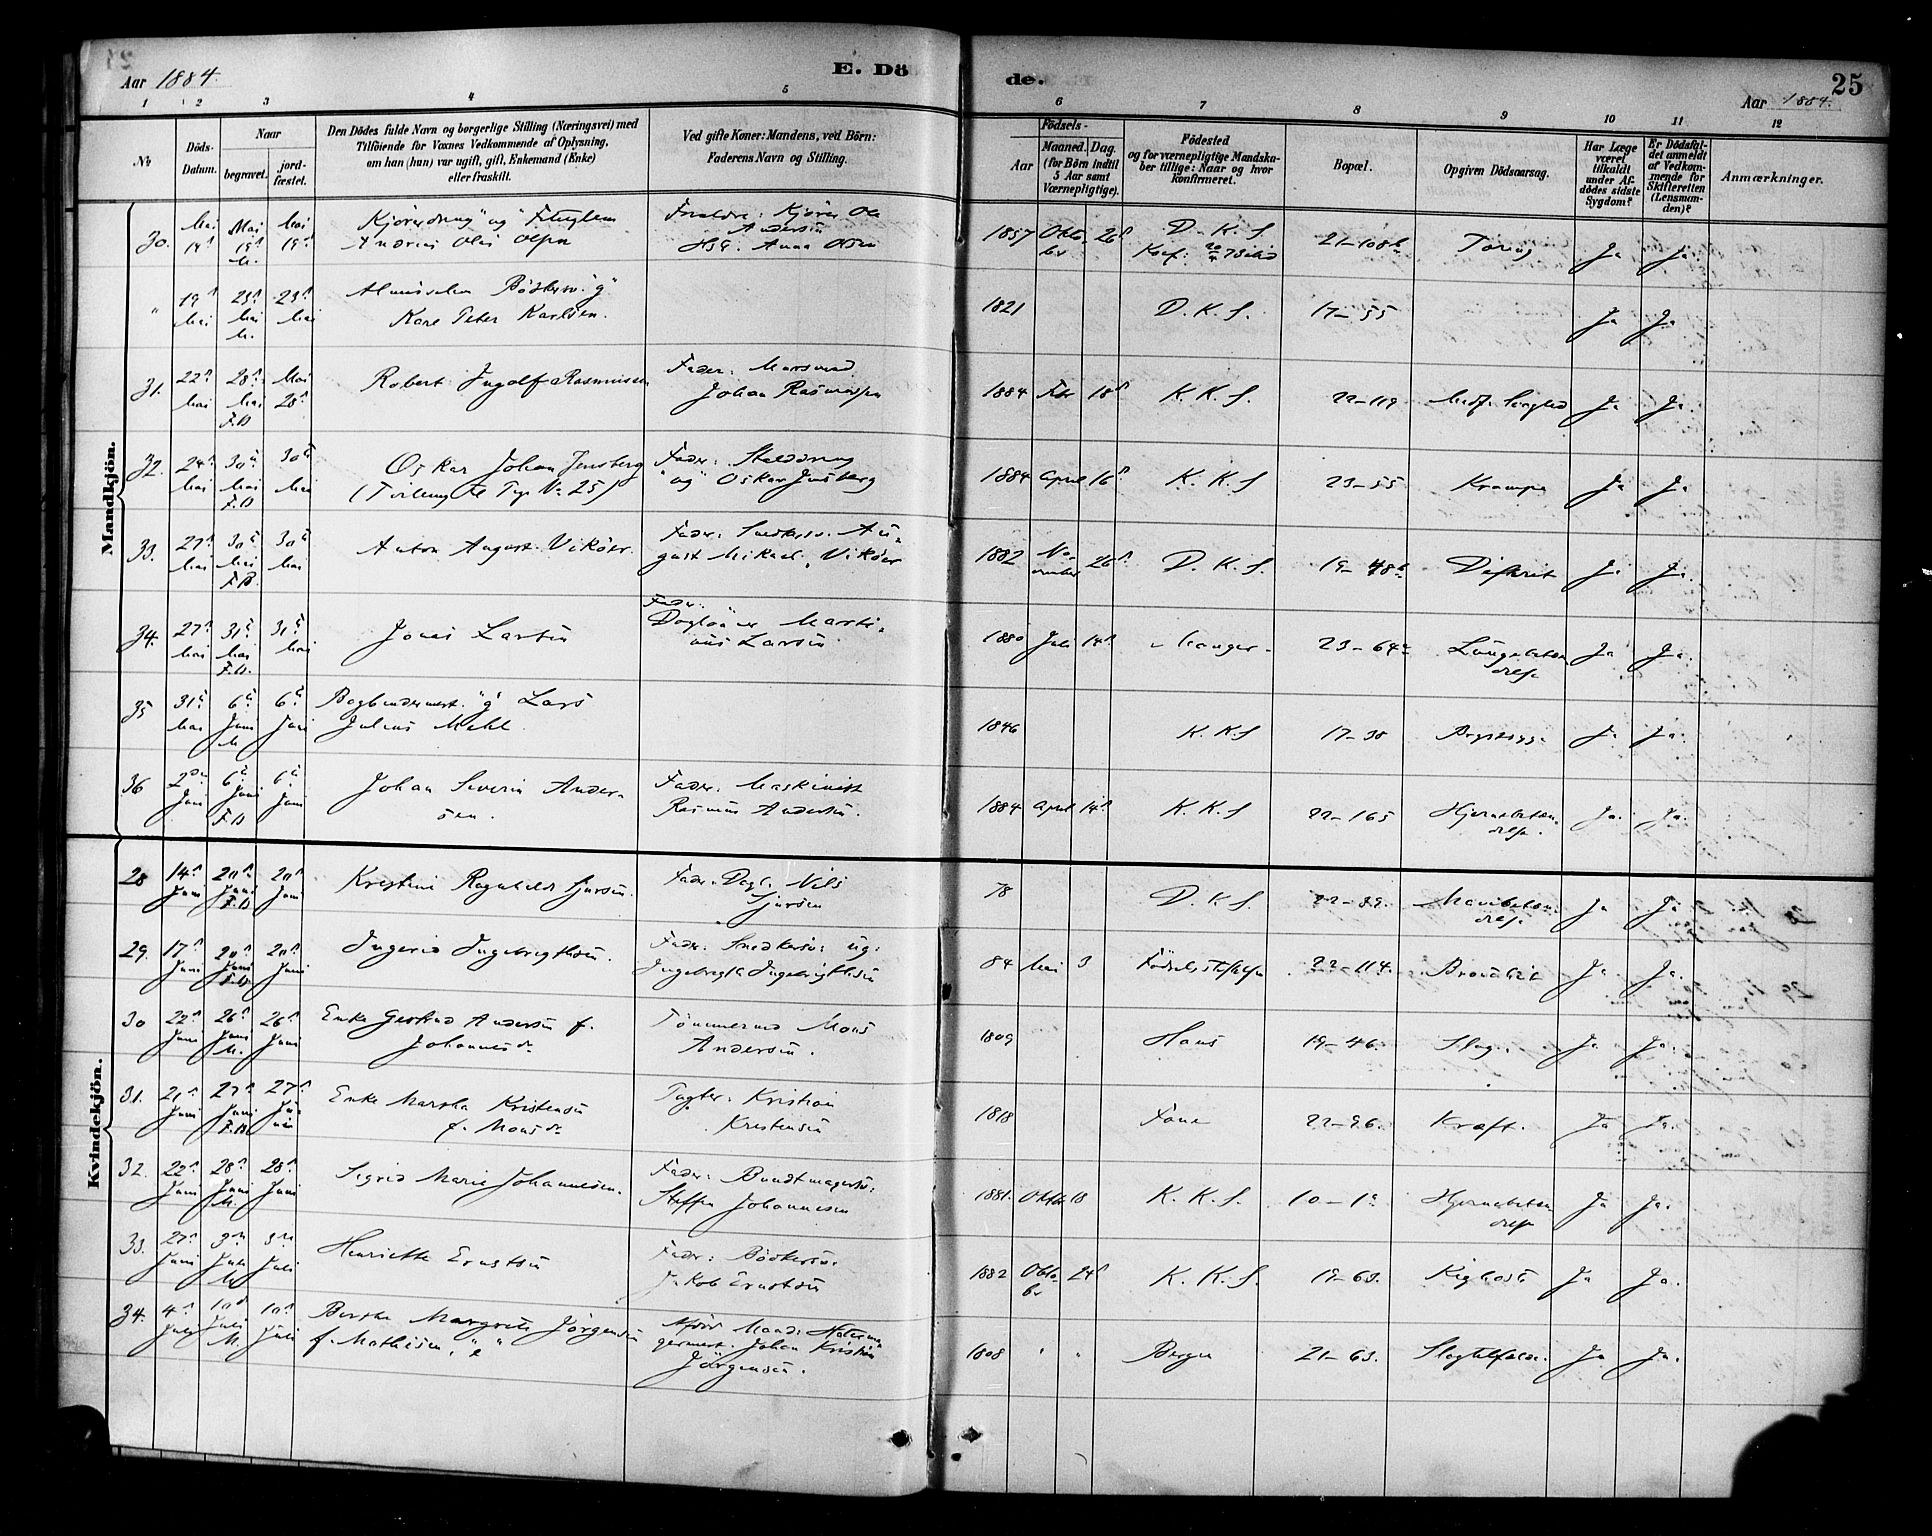 Aar 1884.
E. Dö
de.
25
Aar 1884.
1 2 3 4 5 6 7 8 9 10 11 12
No
Döds-Datum.
Naar
begravet.
jord-fæstet.
Den Dödes fulde Navn og borgerlige Stilling (Næringsvei) med
Tilföiende for Voxnes Vedkommende af Oplysning,
om han (hun) var ugift, gift, Enkemand (Enke)
eller fraskilt.
Ved gifte Koner: Mandens, ved Börn:
Faderens Navn og Stilling.
Födsels-
Aar
Maaned. Dag.
(for Börn indtil
5 Aar samt
Værnepligtige).
Födested
og for værnepligtige Mandska-
ber tillige: Naar og hvor
konfirmeret.
Bopæl.
Opgiven Dödsaarsag.
Har Læge
været
tilkaldt
under Af-
dödes sidste
Sygdom?
Er Dödsfal-
det anmeldt
af Vedkom-
mende for
Skifteretten
(Lensman-
den)?
Anmærkninger.
Mandkjön.
30. Mai Mai 19 Mai 19 Andreas Olai Olsen Kjörer Ole Andersen Anna Olsen 1857 Okto br 26 D. K. S. 21-108b Ja Ja.
" 19 Mai 23 Mai M. 23 Mai Kare Peter Karlsen. 1821 D. K. S. 17-55 Ja Ja
31. 22 Mai 28 Mai F.B Mai 28 Robert Ingolf Rasmussen Fader: Johan Rasmussen 1884 Febr 18 K. K. S. 22-119 Ja Ja.
32. 24 Mai 30 Mai F.B 30 Mai Oskar Johan Jensberg Fader: Stalddreng "ug" Oskar Jensberg 1884 April 16 K. K. S 23-55 Krampe Ja Ja
33. 27 Mai 30 Mai F.B. 30 Mai Anton August Viköer. Fader: Snedkersv. Au-
gust Mikael Viköer 1882 No-vember 26 D. K. S. 19-48b Difterit Ja Ja.
34. 27 Mai 31 Mai F.B. 31 Mai Jonas Larsen Fader: Daglönner Marti-
nus Larsen 1880 Juli 14 Manger 23-64a Lungebeten
delse Ja Ja.
35 31 Mai 6 Juni M 6 Juni Bogbindermest. "g" Lars
Julius Mehl. 1846 K. K. S 17-38 Brystsyge Ja Ja.
36 2den Juni 6 Juni F.B 6 Juni Johan Severin Ander-
sen. Fader: Maskinist
Rasmus Andersen. 1884 April 14 K. K. S 22-165 Hjernebeten
delse. Ja. Ja.
Kvindekjön.
28 14 Juni 20 Juni F.B 20 Juni Kristine Ragnhilde Sjursen. Fader: Dagl. Nils
Sjursen 78 D. K. S. 22-89. Mavebeten
delse Ja Ja
29. 17 Juni 20 Juni F.B 20 Juni Ingerid Ingebrigtsen. Fader: Snedkersv: ug:
Ingebrigt Ingebrigtsen 84 Mai 3 Födselsstiftelsen 22-114. Bronchit Ja Ja.
30 22 Juni 26 Juni M. 26 Juni Enke Gertrud Andersen f.
Johannesdr. Tömmermd Mons
Andersen. 1809 Haus 19-46. Slag. Ja Ja.
31. 21 Juni 27 Juni F.B 27 Ju-ni Enke Martha Kristensen
f. Monsdr. Kristian
Kristensen 1818 Fane 22-96. Kræft. Ja Ja.
32. 22 Juni 28 Juni M. 28 Juni Sigrid Marie Johannesen. Fader: Buntmagersv:
Steffen Johannesen 1881. Oktbr 18 K. K. S. 10-1a Hjernebeten
delse Ja Ja.
33. 27 Juni 3 Juli M 3 Juli Henriette Ernstsen Fader: Bödkersv.
Jakob Ernstsen 1882 Okto-br 24 K. K. S. 19-63. Kighoste Ja Ja.
34. 4 Juli 10 Juli M. 10 Juli Berthe Margrete Jörgensen
f. Mathisen, "e" Johan Kristian
Jörgensen. 1808 " " Bergen 21-63. Slagtilfælde. Ja Ja.